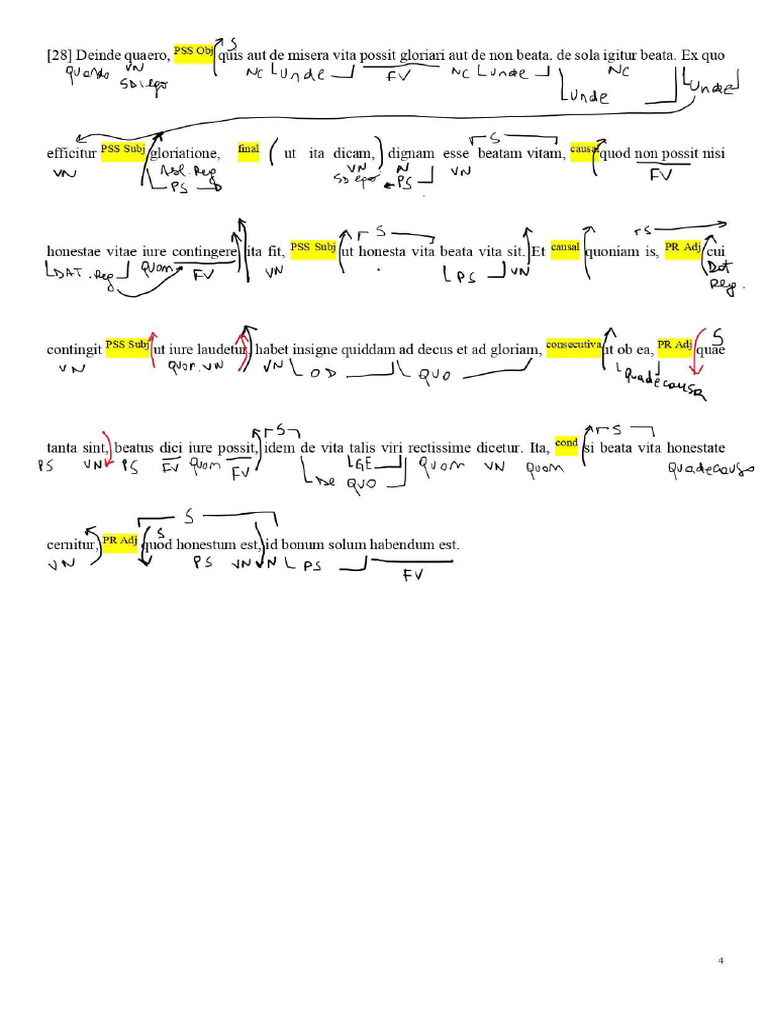 [28] Deinde quaero, PSS Obj quis aut de misera vita possit gloriari aut de non beata. de sola igitur beata. Ex quo
S
Quando VN NC Unde FV NC Unde NC Unde
SD: ego Unde
efficitur PSS Subj gloriatione, final ut ita dicam, dignam esse beatam vitam, causal quod non possit nisi
S
VN Abl. Reg VN N VN FV
PS SD ego PS
honestae vitae iure contingere ita fit, PSS Subj ut honesta vita beata vita sit. Et causal quoniam is, PR Adj cui
S S
DAT. Reg Quom FV VN PS VN Dat
Reg.
contingit PSS Subj ut iure laudetur, habet insigne quiddam ad decus et ad gloriam, consecutiva ut ob ea, PR Adj quae
S
VN Quom. VN VN OD QUO Quadecausa
tanta sint, beatus dici iure possit, idem de vita talis viri rectissime dicetur. Ita, cond si beata vita honestate
S S
PS VN PS FV Quom FV GE Quom VN Quom Quadecausa
De QUO
cernitur, PR Adj quod honestum est, id bonum solum habendum est.
S S
VN PS VN VN PS FV
4